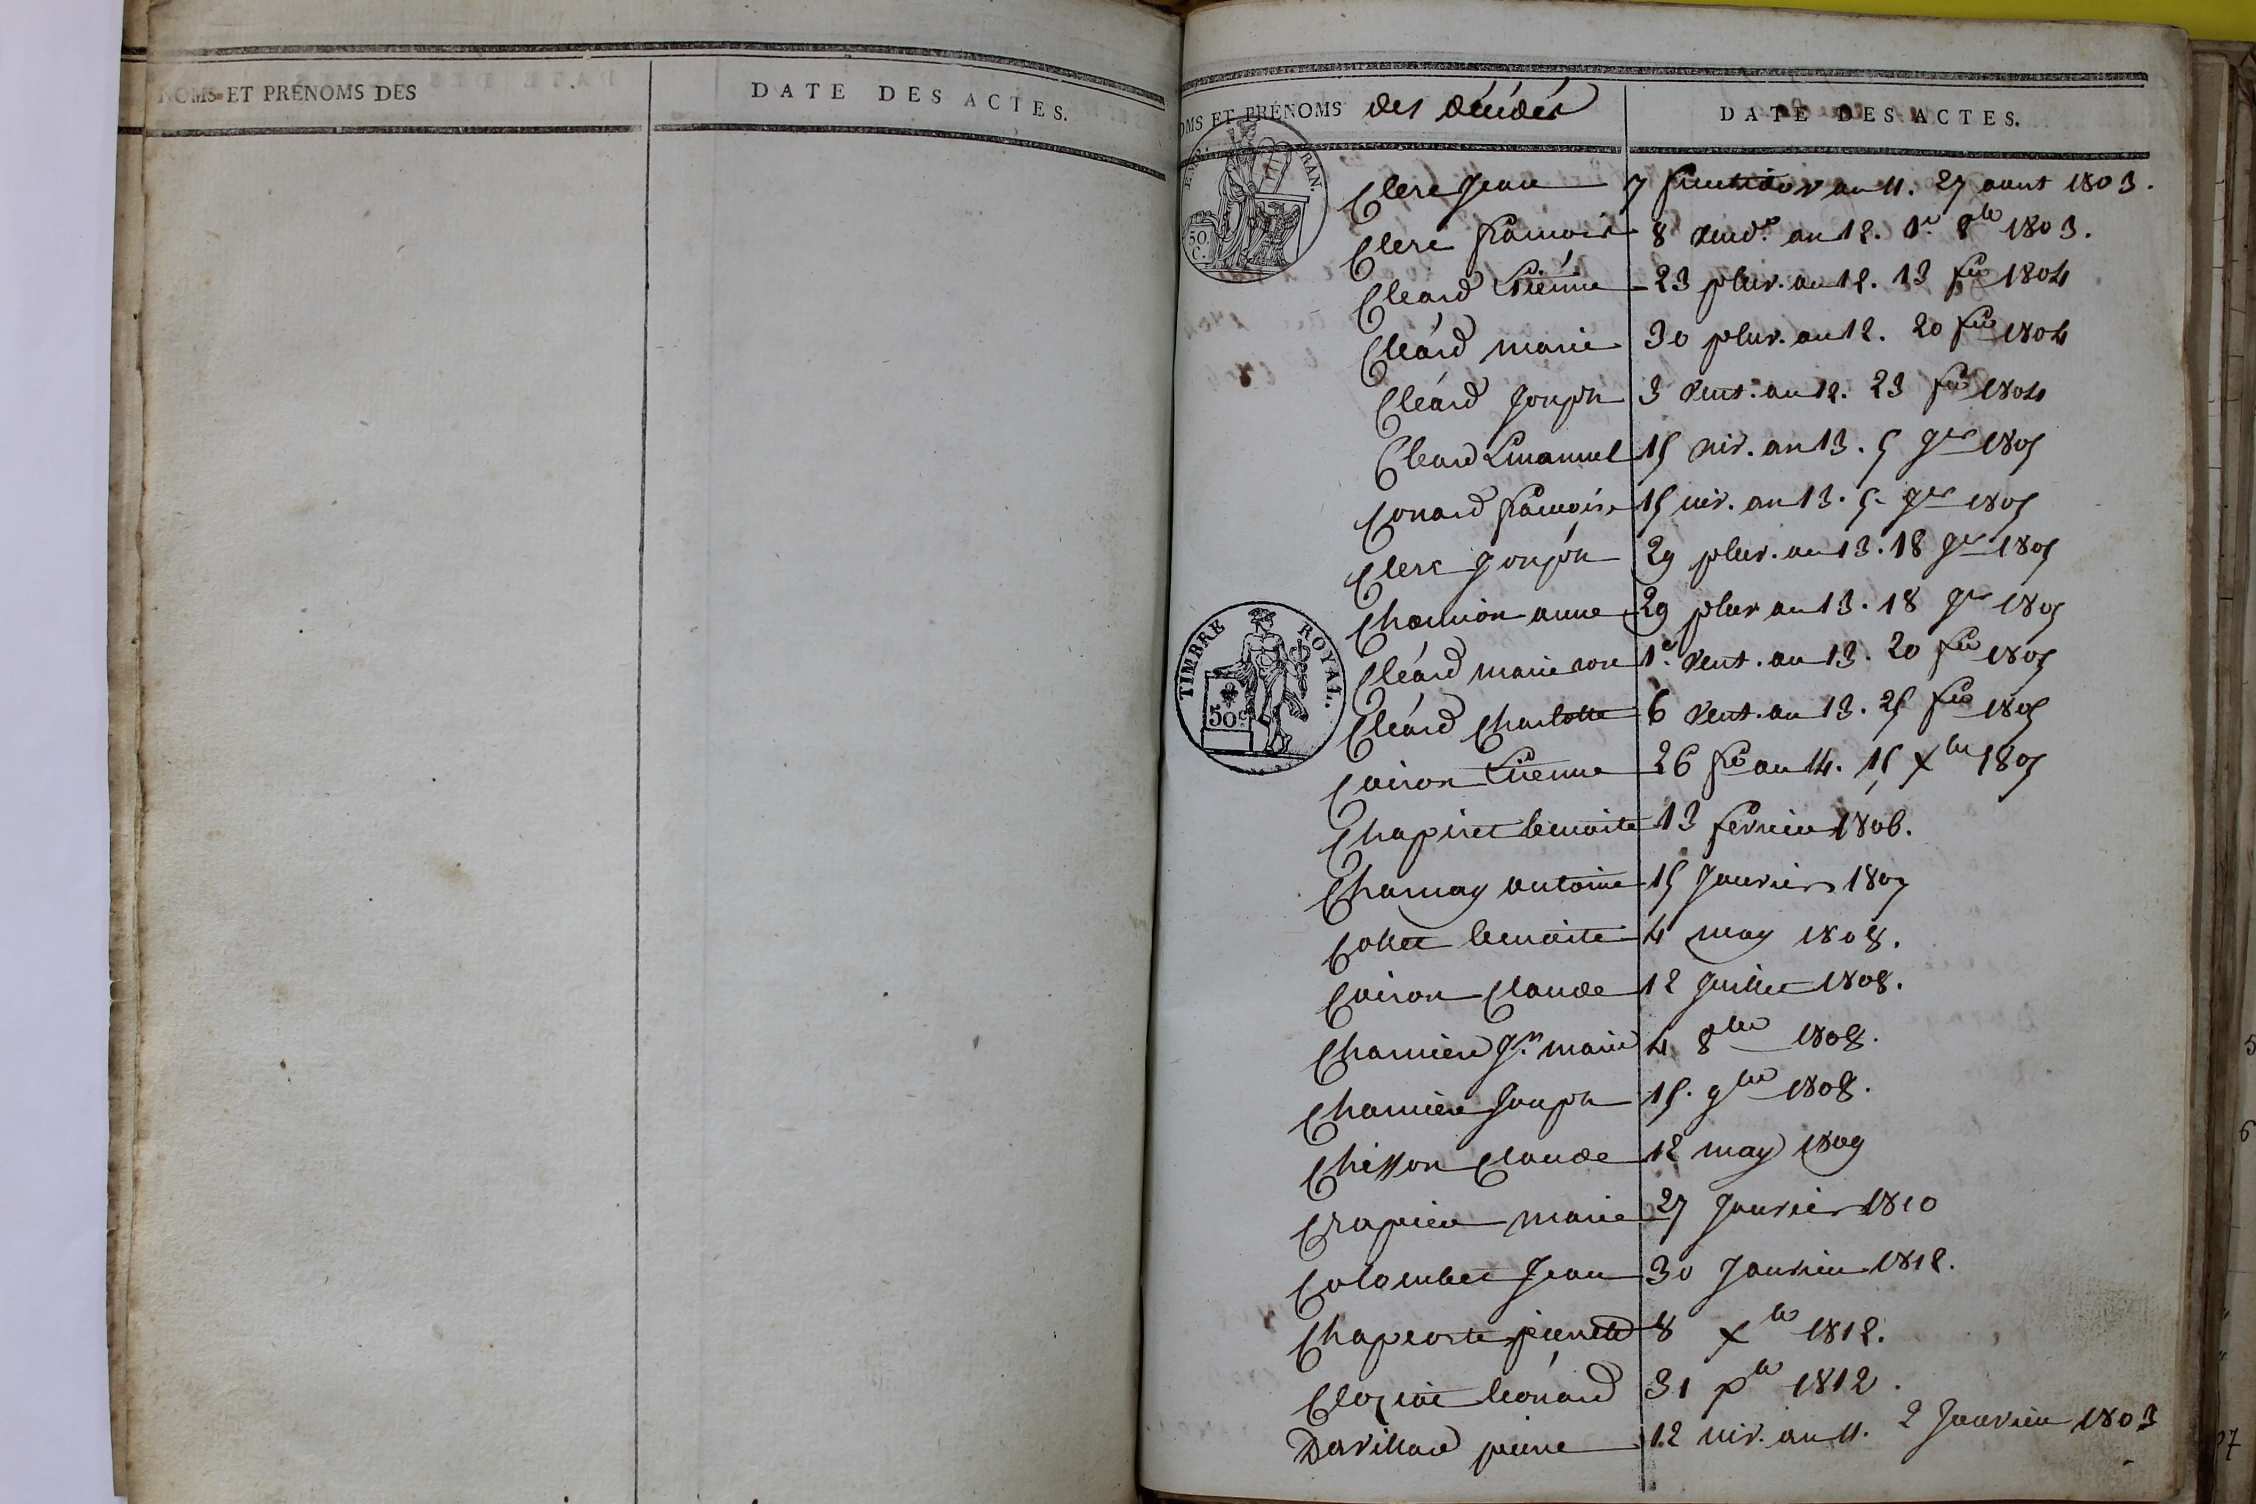 NOMS ET PRÉNOMS DES
DATE DES ACTES.
OMS ET PRÉNOMS des décédés
DATE DES ACTES.
RAN.
50.
C.
Clerc Jean 7 fructidor an 11. 27 aout 1803.
Clerc francois 8 vend.e an 12. 1.er 8bre 1803.
Cleard Etienne 23 pluv. an 12. 13 fer 1804
Cléard marie 30 pluv. an 12. 20 fer 1804
Cléard Joseph 3 vent. an 12. 23 fer 1804
Cleard Emanuel 15 niv. an 13. 5 Jer 1805
Conard francoise 15 niv. an 13. 5 Jer 1805
Clerc Joseph 29 pluv. an 13. 18 Jer 1805
anne 29 pluv an 13. 18 Jer 1805
Cléard marie 1er vent. an 13. 20 fer 1805
Cléard Charlotte 6 vent. an 13. 25 fer 1805
Coiron Etienne 26 an 14. 15 Xbre 1805
TIMBRE ROYAL.
50c
benoite 13 fevrier 1806.
Charnay antoine 15 Janvier 1807
Collet benoite 4 may 1808.
Coiron Claude 12 Juillet 1808.
marie 4 8bre 1808.
Joseph 15. 9bre 1808.
Chisson Claude 12 may 1809
Crapier marie 27 Janvier 1810
Colombet Jean 30 Janvier 1812.
8 Xbre 1812.
léonard 31 1812.
Davillard pierre 12 niv. an 11. 2 Janvier 1803